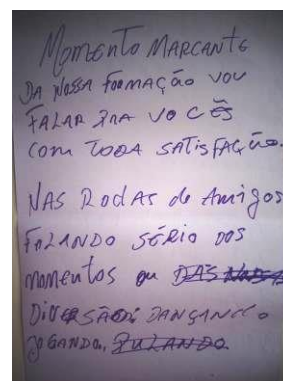 Momento MARCANTE
DA Nossa FORMAÇÃO VOU
FALAR PRA VOCÊS
COM TODA SATISFAÇÃO.
NAS RODAS de Amigos
FALANDO SÉRIO DOS
momentos ou DAS
DIVERSÃO DANÇANDO
JOGANDO. PULANDO